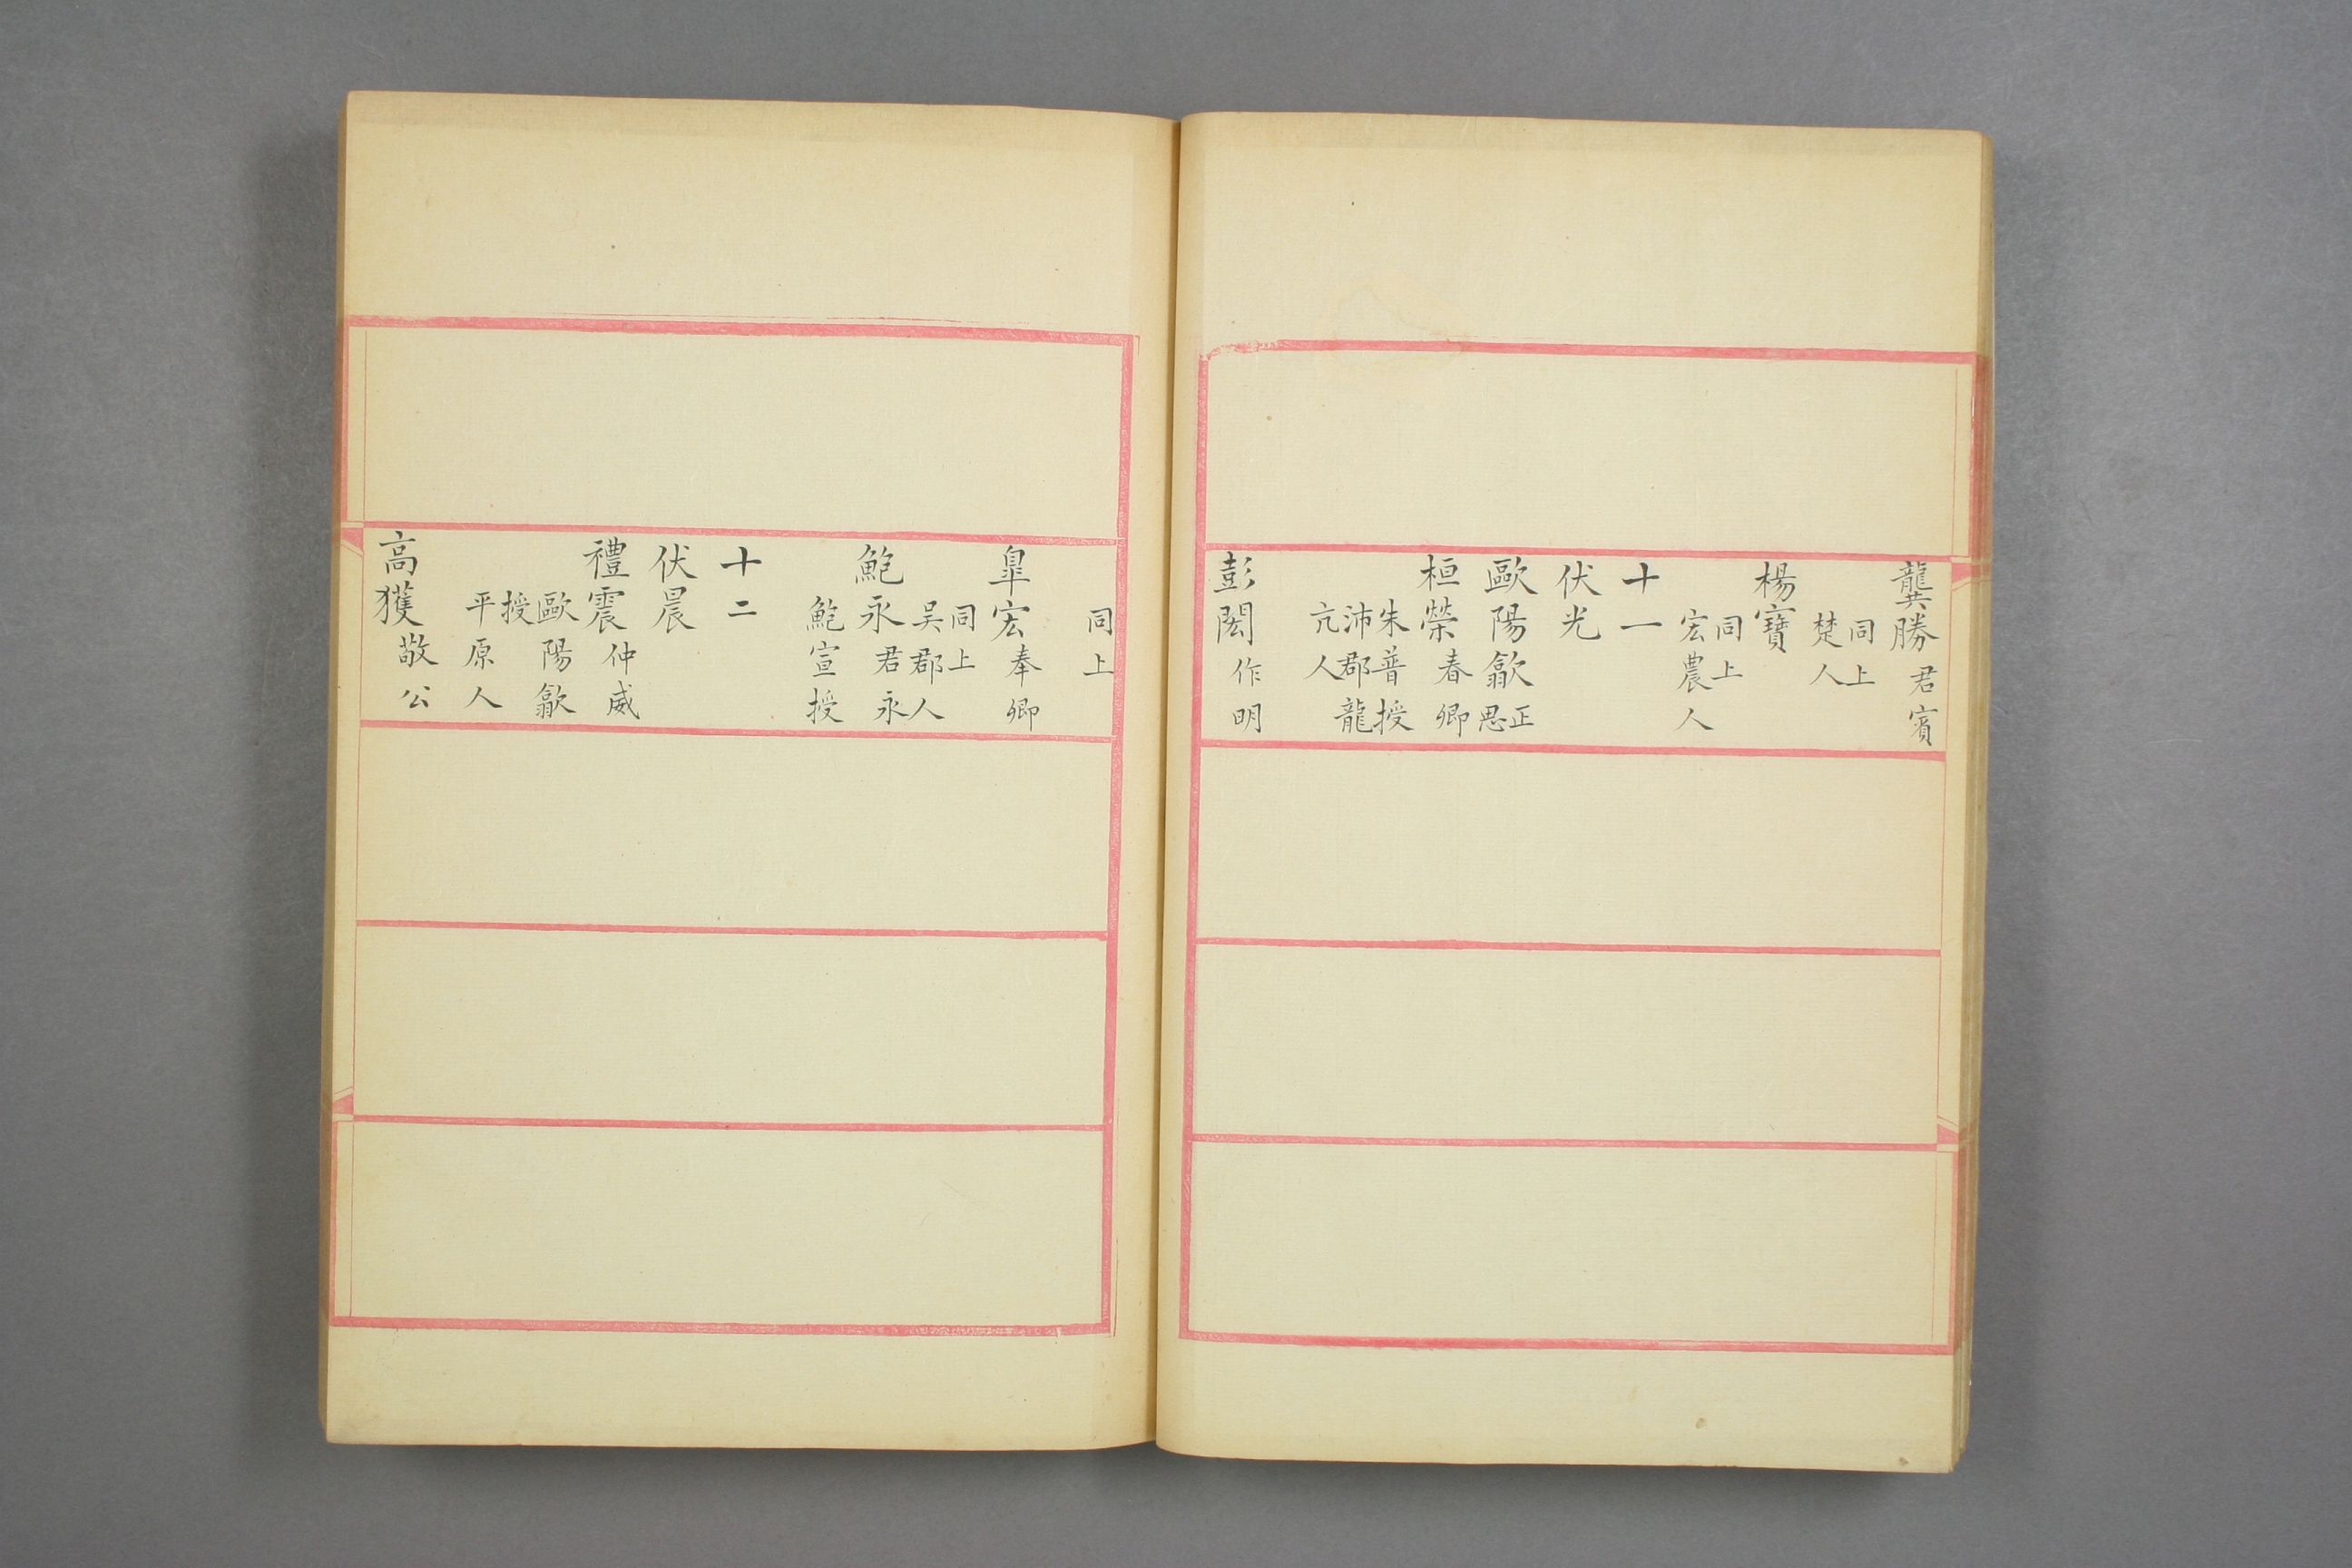 龔勝君賓
同上
楚人
楊寶
同上
宏農人
十一
伏光
歐陽歙正思
桓榮春卿
朱普授
沛郡龍
亢人
彭閎作明
同上
皐宏奉卿
同上
吳郡人
鮑永君永
鮑宣授
十二
伏晨
禮震仲威
歐陽歙
授
平原人
高獲敬公